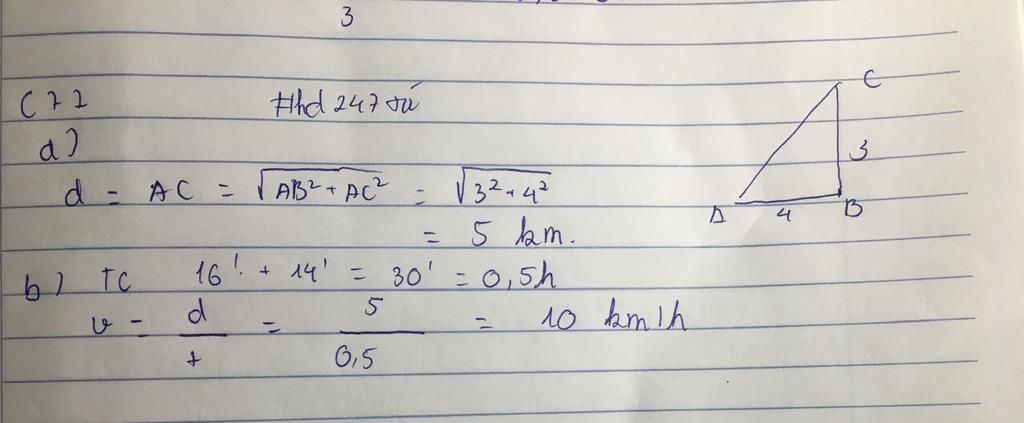 3
C72
a)
d = AC = √AB² + AC² = √3² + 4²
= 5 km.
b) TC 16' + 14' = 30' = 0,5h
v = d/t = 5/0,5 = 10 km/h
C
3
A 4 B